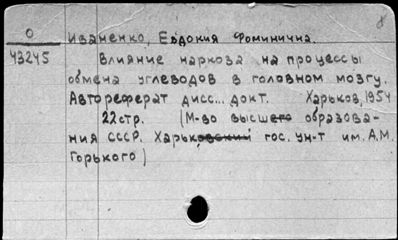 8
О
Иваненко, Евдокия Фоминична.
43245
Влияние наркоза на процессы
обмена углеводов в головном мозгу.
Автореферат дисс... докт. Харьков, 1954
22 стр. (М-во высшего образова-
ния СССР. Харьковский гос. ун-т им. А.М.
Горького)